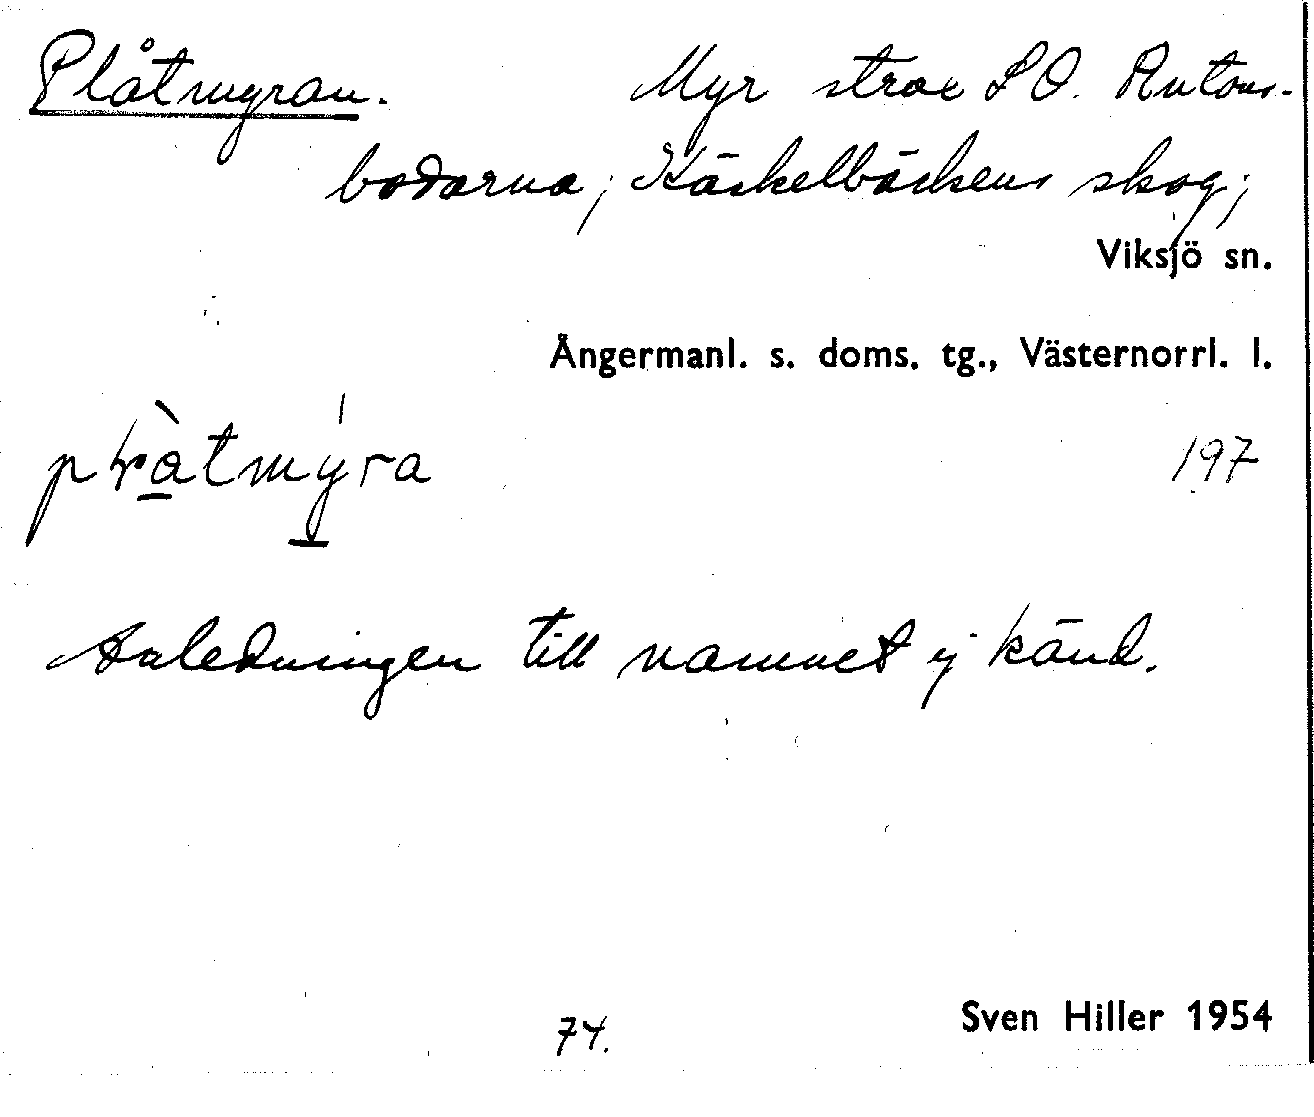 Plåtmyran. Myr strax S O. Antons-
bodarna; Käckelbäckens skog;
Viksjö sn.
Ångermanl. s. doms. tg., Västernorrl. l.
197
Anledningen till namnet ej känd.
74.
Sven Hiller 1954